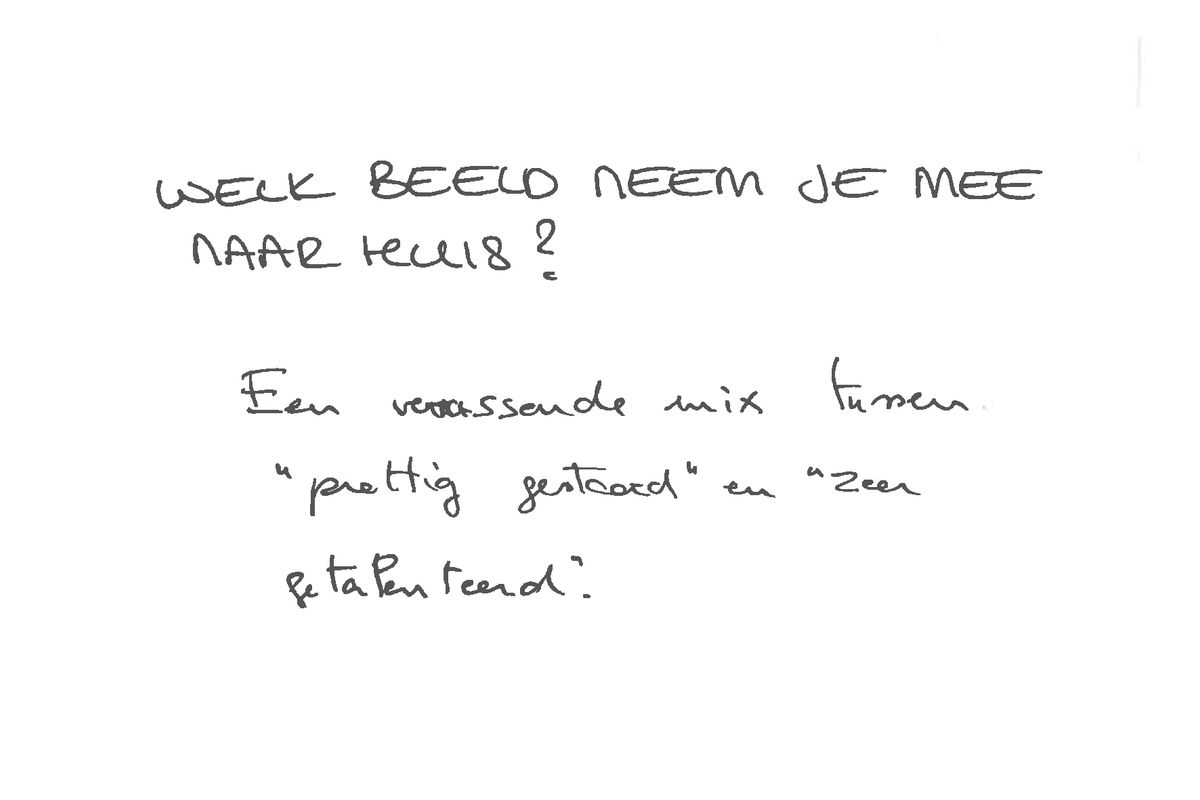 WELK BEELD NEEM JE MEE
NAAR HUIS?
Een verrassende mix tussen
"prettig gestoord" en "zeer
getalenteerd".